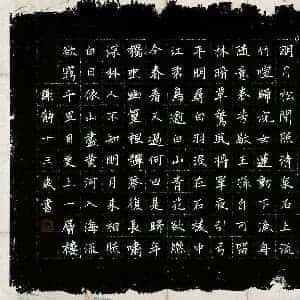 明月松間照清泉石上流
竹喧歸浣女蓮動下漁舟
隨意春芳歇王孫自可留
林暗草驚風將軍夜引弓
平明尋白羽沒在石稜中
江碧鳥逾白山青花欲燃
今春看又過何日是歸年
獨坐幽篁裏彈琴復長嘯
深林人不知明月來相照
白日依山盡黃河入海流
欲窮千里目更上一層樓
十三歲書